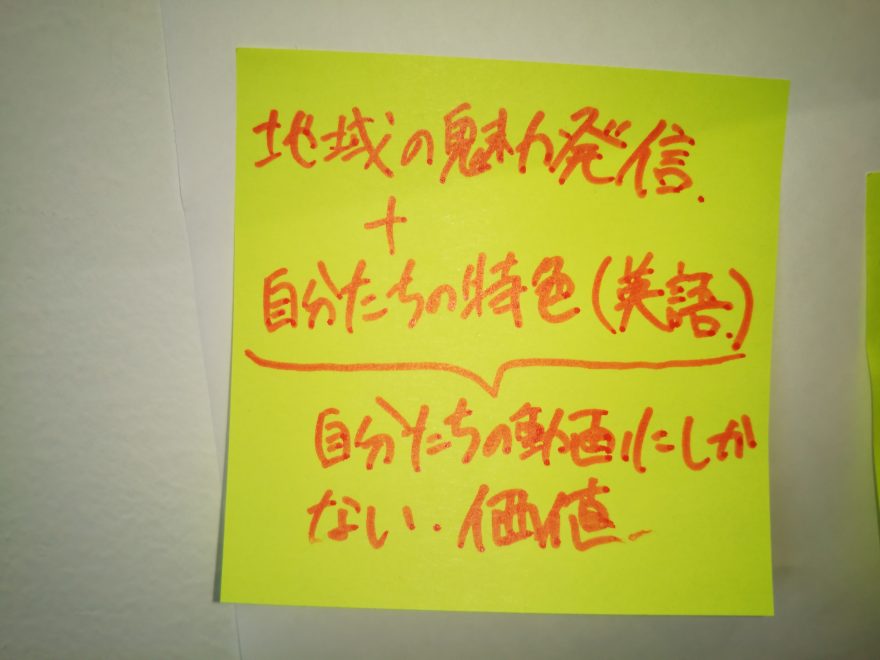 地域の魅力発信.
+
自分たちの特色(英語.)
自分たちの動画にしか
ない.価値